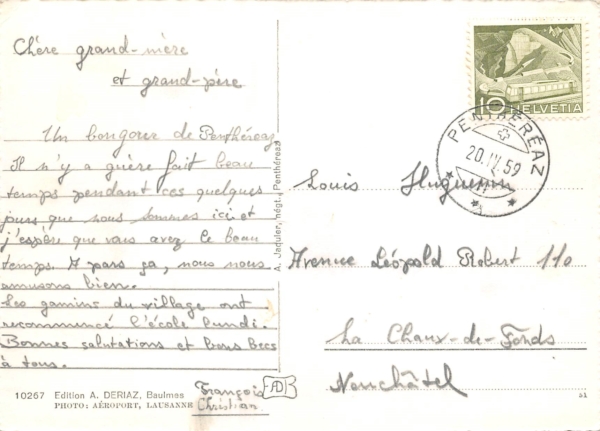 Chère grand-mère
et grand-père
Un bongour de Penthéréaz
Il n'y a guère fait beau
temps pendant ces quelques
jours que nous sommes ici et
j'espère que vous avez le beau
temps. A pars ça, nous nous
amusons bien.
Les gamins du village ont
recommencé l'école lundi.
Bonnes salutations et bons becs
à tous.
François
Christian
10267 Edition A. DERIAZ, Baulmes
PHOTO: AÉROPORT, LAUSANNE
AD
A. Jaquier, negt., Penthéréaz
10 HELVETIA
PENTHÉRÉAZ
20.IV.59
Louis Huguenin
Avenue Léopold Robert 110
La Chaux-de-Fonds
Neuchâtel